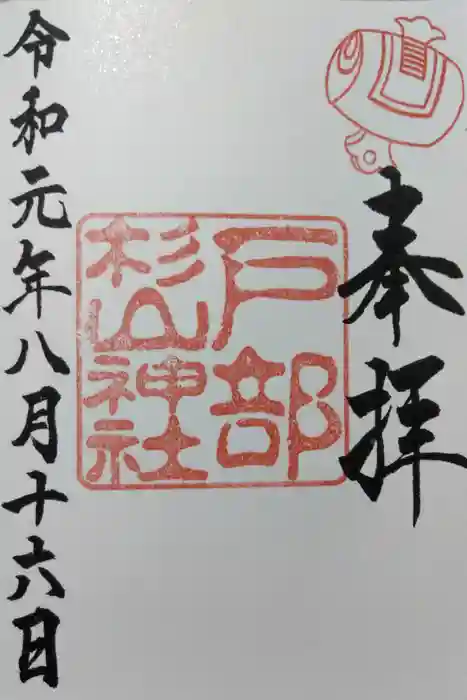 奉拝
戸部
杉山
神社
令和元年八月十六日